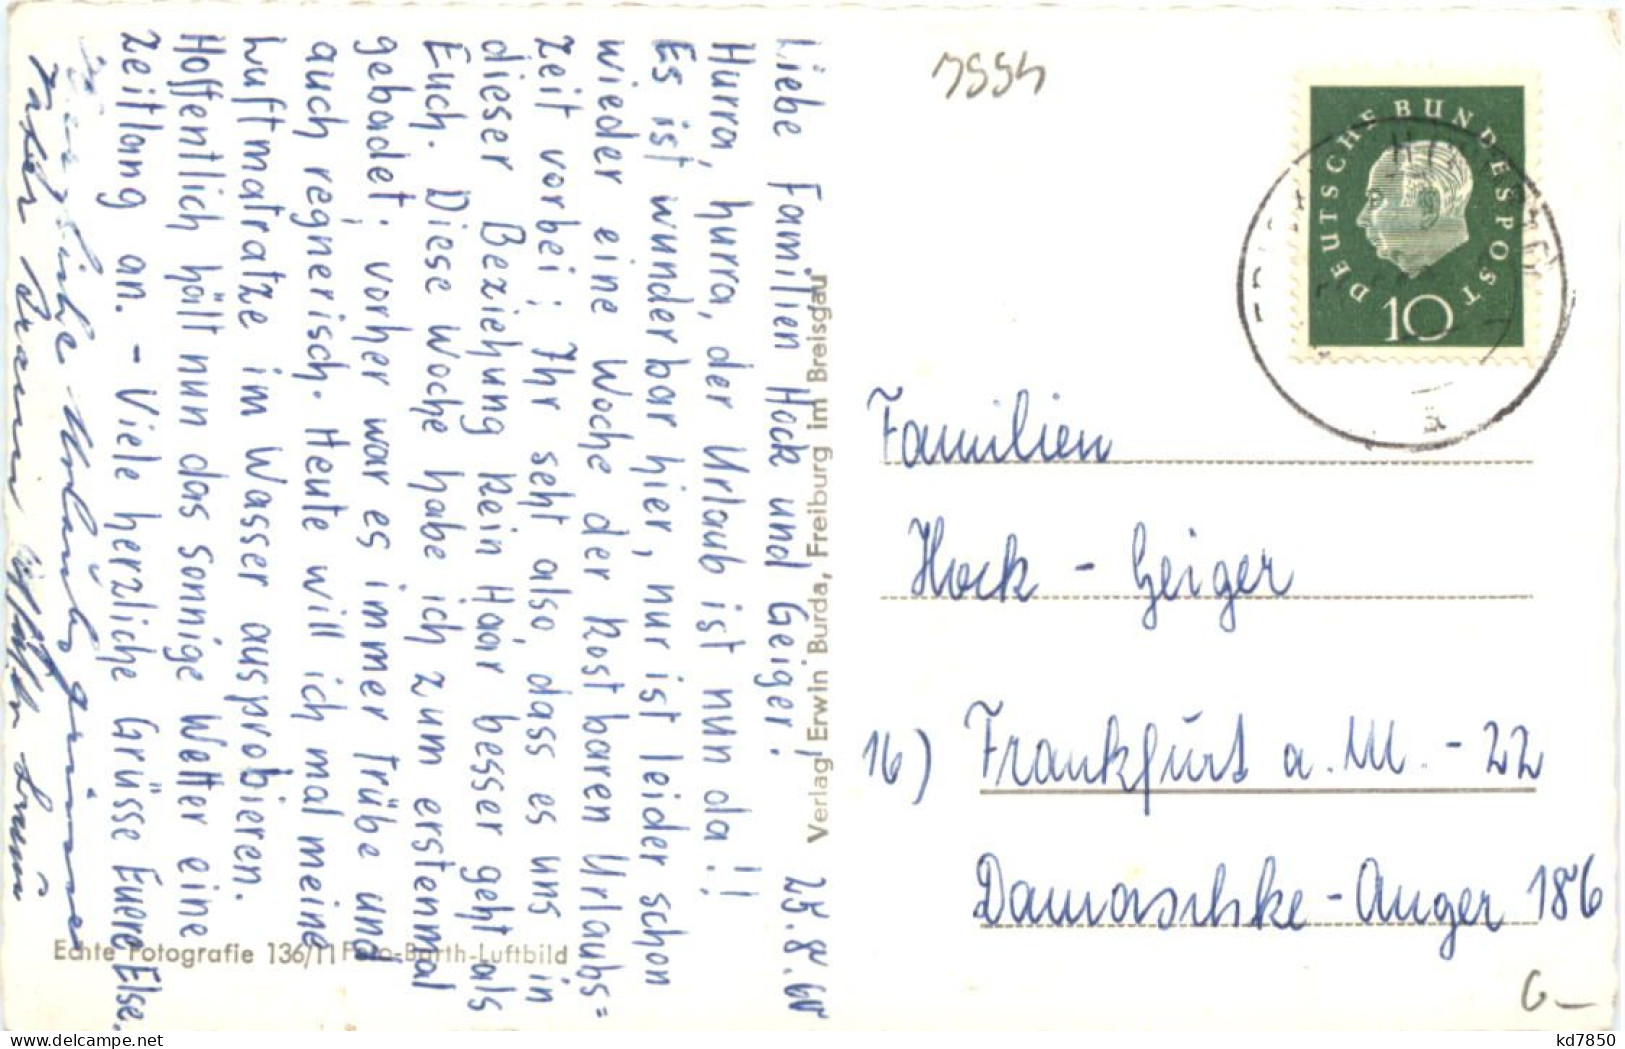 7994
DEUTSCHE BUNDESPOST
10
Liebe Familien Hock und Geiger! 25.8.60
Hurra, hurra, der Urlaub ist nun da!!
Es ist wunderbar hier, nur ist leider schon
wieder eine Woche der kostbaren Urlaubs=
zeit vorbei; Ihr seht also, dass es uns in
dieser Beziehung kein Haar besser geht als
Euch. Diese Woche habe ich zum erstenmal
gebadet; vorher war es immer trübe und
auch regnerisch. Heute will ich mal meine
Luftmatratze im Wasser ausprobieren.
Hoffentlich hält nun das sonnige Wetter eine
Zeitlang an. - Viele herzliche Grüsse Euere Else.
liebe Urlaubsgrüsse
Verlag Erwin Burda, Freiburg im Breisgau
Echte Fotografie 136/11 Foto-Barth-Luftbild
Familien
Hock - Geiger
16) Frankfurt a. M. - 22
Damaschke-Anger 186
G-
kd7850